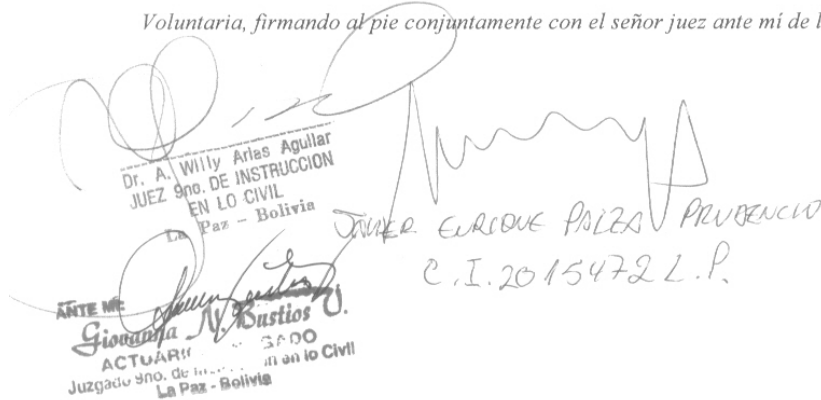 Voluntaria, firmando al pie conjuntamente con el señor juez ante mí de l
Dr. A. Willy Arias Aguilar
JUEZ 9no. DE INSTRUCCION
EN LO CIVIL
La Paz - Bolivia
JAVIER ENRIQUE PAIZA PRUDENCIO
C.I. 2015472 L.P.
ANTE MI:
Giovanna N. Bustios U.
ACTUARI
Juzgado 9no. de en lo Civil
La Paz - Bolivia